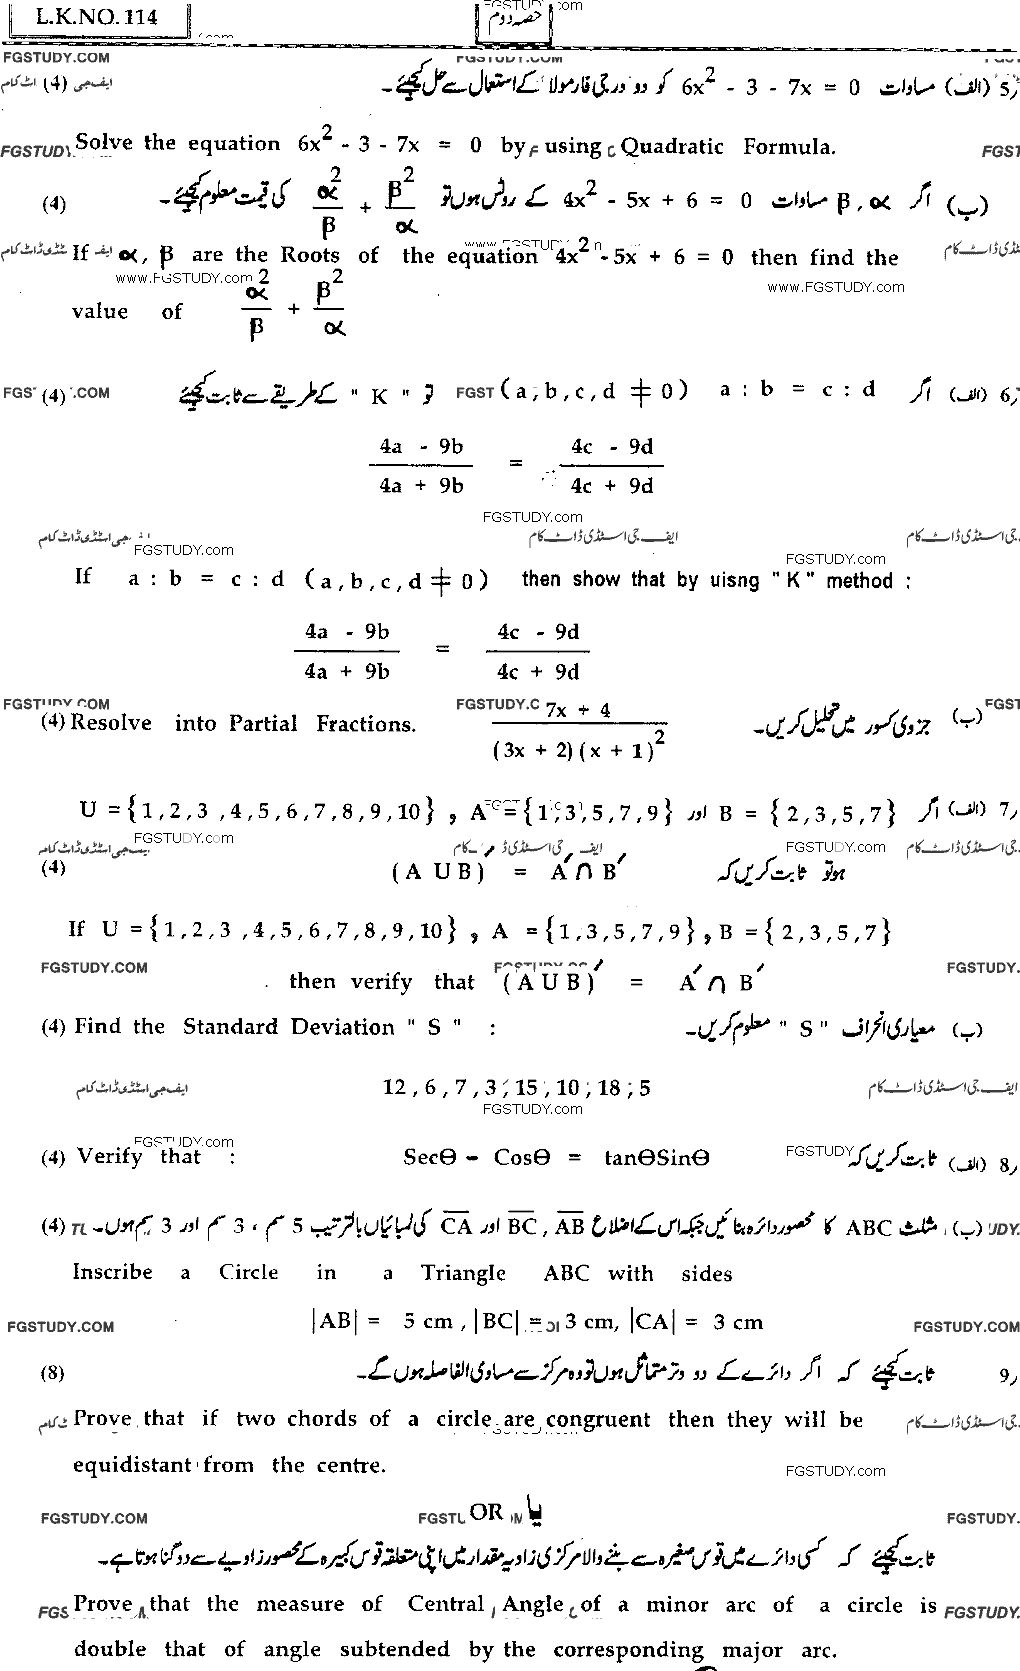 L.K.NO. 114
حصہ دوم
FGSTUDY.COM
5/ (الف) مساوات 6x² - 3 - 7x = 0 کو دو درجی فارمولا کے استعمال سے حل کیجئے۔ (4)
Solve the equation 6x² - 3 - 7x = 0 by using Quadratic Formula.
(ب) اگر α , β مساوات 4x² - 5x + 6 = 0 کے روٹس ہوں تو α²/β + β²/α کی قیمت معلوم کیجئے۔ (4)
If α, β are the Roots of the equation 4x² - 5x + 6 = 0 then find the
www.FGSTUDY.com www.FGSTUDY.com
value of α²/β + β²/α
6/ (الف) اگر a : b = c : d (a, b, c, d ≠ 0) تو " K " کے طریقے سے ثابت کیجئے (4)
(4a - 9b)/(4a + 9b) = (4c - 9d)/(4c + 9d)
FGSTUDY.com
ایف جی اسٹڈی ڈاٹ کام
FGSTUDY.com FGSTUDY.com
If a : b = c : d (a, b, c, d ≠ 0) then show that by uisng "K" method :
(4a - 9b)/(4a + 9b) = (4c - 9d)/(4c + 9d)
(4) Resolve into Partial Fractions. (7x + 4)/((3x + 2)(x + 1)²) (ب) جزوی کسور میں تحلیل کریں۔
7/ (الف) اگر U = {1, 2, 3, 4, 5, 6, 7, 8, 9, 10} , A = {1, 3, 5, 7, 9} اور B = {2, 3, 5, 7}
FGSTUDY.com FGSTUDY.com
ہوتو ثابت کریں کہ (A ∪ B)′ = A′ ∩ B′ (4)
If U = {1, 2, 3, 4, 5, 6, 7, 8, 9, 10} , A = {1, 3, 5, 7, 9} , B = {2, 3, 5, 7}
FGSTUDY.COM
then verify that (A ∪ B)′ = A′ ∩ B′
(4) Find the Standard Deviation " S " : (ب) معیاری انحراف " S " معلوم کریں۔
12 , 6 , 7 , 3 ; 15 , 10 ; 18 ; 5
FGSTUDY.com
FGSTUDY.com
(4) Verify that : Secθ - Cosθ = tanθSinθ 8/ (الف) ثابت کریں کہ
(ب) مثلث ABC کا محصور دائرہ بنائیں جبکہ اس کے اضلاع AB , BC اور CA کی لمبائیاں بالترتیب 5 سم ، 3 سم اور 3 سم ہوں۔ (4)
Inscribe a Circle in a Triangle ABC with sides
|AB| = 5 cm , |BC| = 3 cm, |CA| = 3 cm
FGSTUDY.COM FGSTUDY.COM
9/ ثابت کیجئے کہ اگر دائرے کے دو وتر متماثل ہوں تو وہ مرکز سے مساوی الفاصلہ ہوں گے۔ (8)
Prove that if two chords of a circle are congruent then they will be
equidistant from the centre.
FGSTUDY.com
FGSTUDY.COM OR یا FGSTUDY.
ثابت کیجئے کہ کسی دائرے میں قوس صغیرہ سے بننے والا مرکزی زاویہ مقدار میں اپنی متعلقہ قوس کبیرہ کے محصور زاویے سے دوگنا ہوتا ہے۔
Prove that the measure of Central Angle of a minor arc of a circle is
double that of angle subtended by the corresponding major arc.